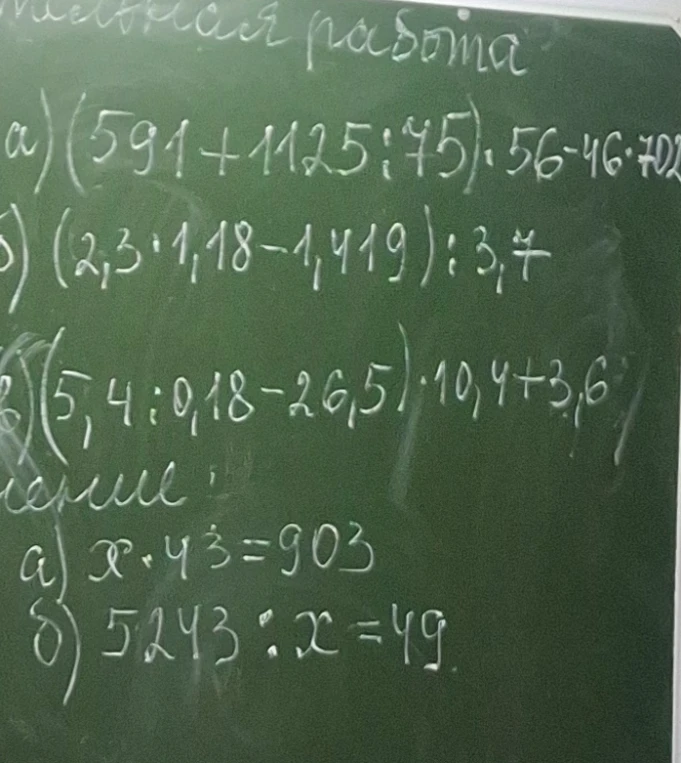 работа
а) (591+1125:75)·56-46·702
б) (2,3·1,18-1,419):3,7
в) (5,4:0,18-26,5)·10,4+3,6
а) x·43=903
б) 5243:x=49